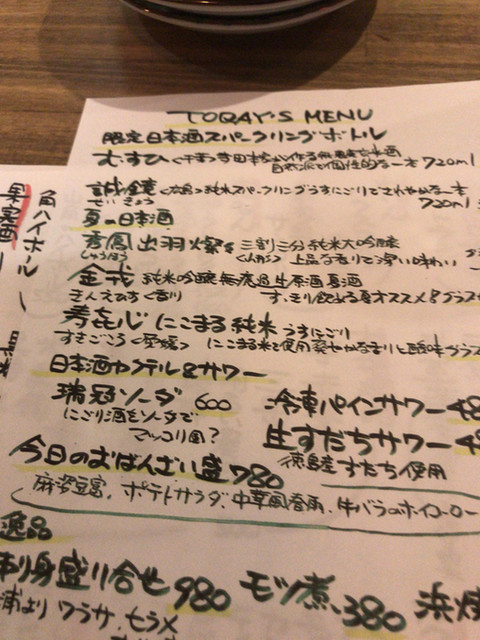 TODAY'S MENU
限定日本酒スパークリングボトル
むすひ <千葉>寺田本家が作る無農薬玄米酒
自然派で個性的な一本 720ml
誠鏡 <広島> 純米スパークリングうすにごりでさわやかな一本
せいきょう 720ml
夏の日本酒
秀鳳 出羽燦々 三割三分 純米大吟醸
しゅうほう <山形> 上品な香りで深い味わい
金戎 純米吟醸無濾過生原酒 夏酒
きんえびす <香川> すっきり飲める夏オススメ
寿㐂心 にこまる純米 うすにごり
すきごころ <愛媛> にこまる米を使用 爽やかな香りと酸味
日本酒カクテル&サワー
瑞冠ソーダ 600
にごり酒をソーダで
マッコリ風?
冷凍パインサワー 48
生すだちサワー 48
徳島産すだち使用
今日のおばんざい盛 780
麻婆豆腐、ポテトサラダ、中華風春雨、牛バラのホイコーロー
逸品
刺身盛り合せ 980
浦より ワラサ、ヒラメ
モツ煮 380
浜焼
角ハイボール
果実酒